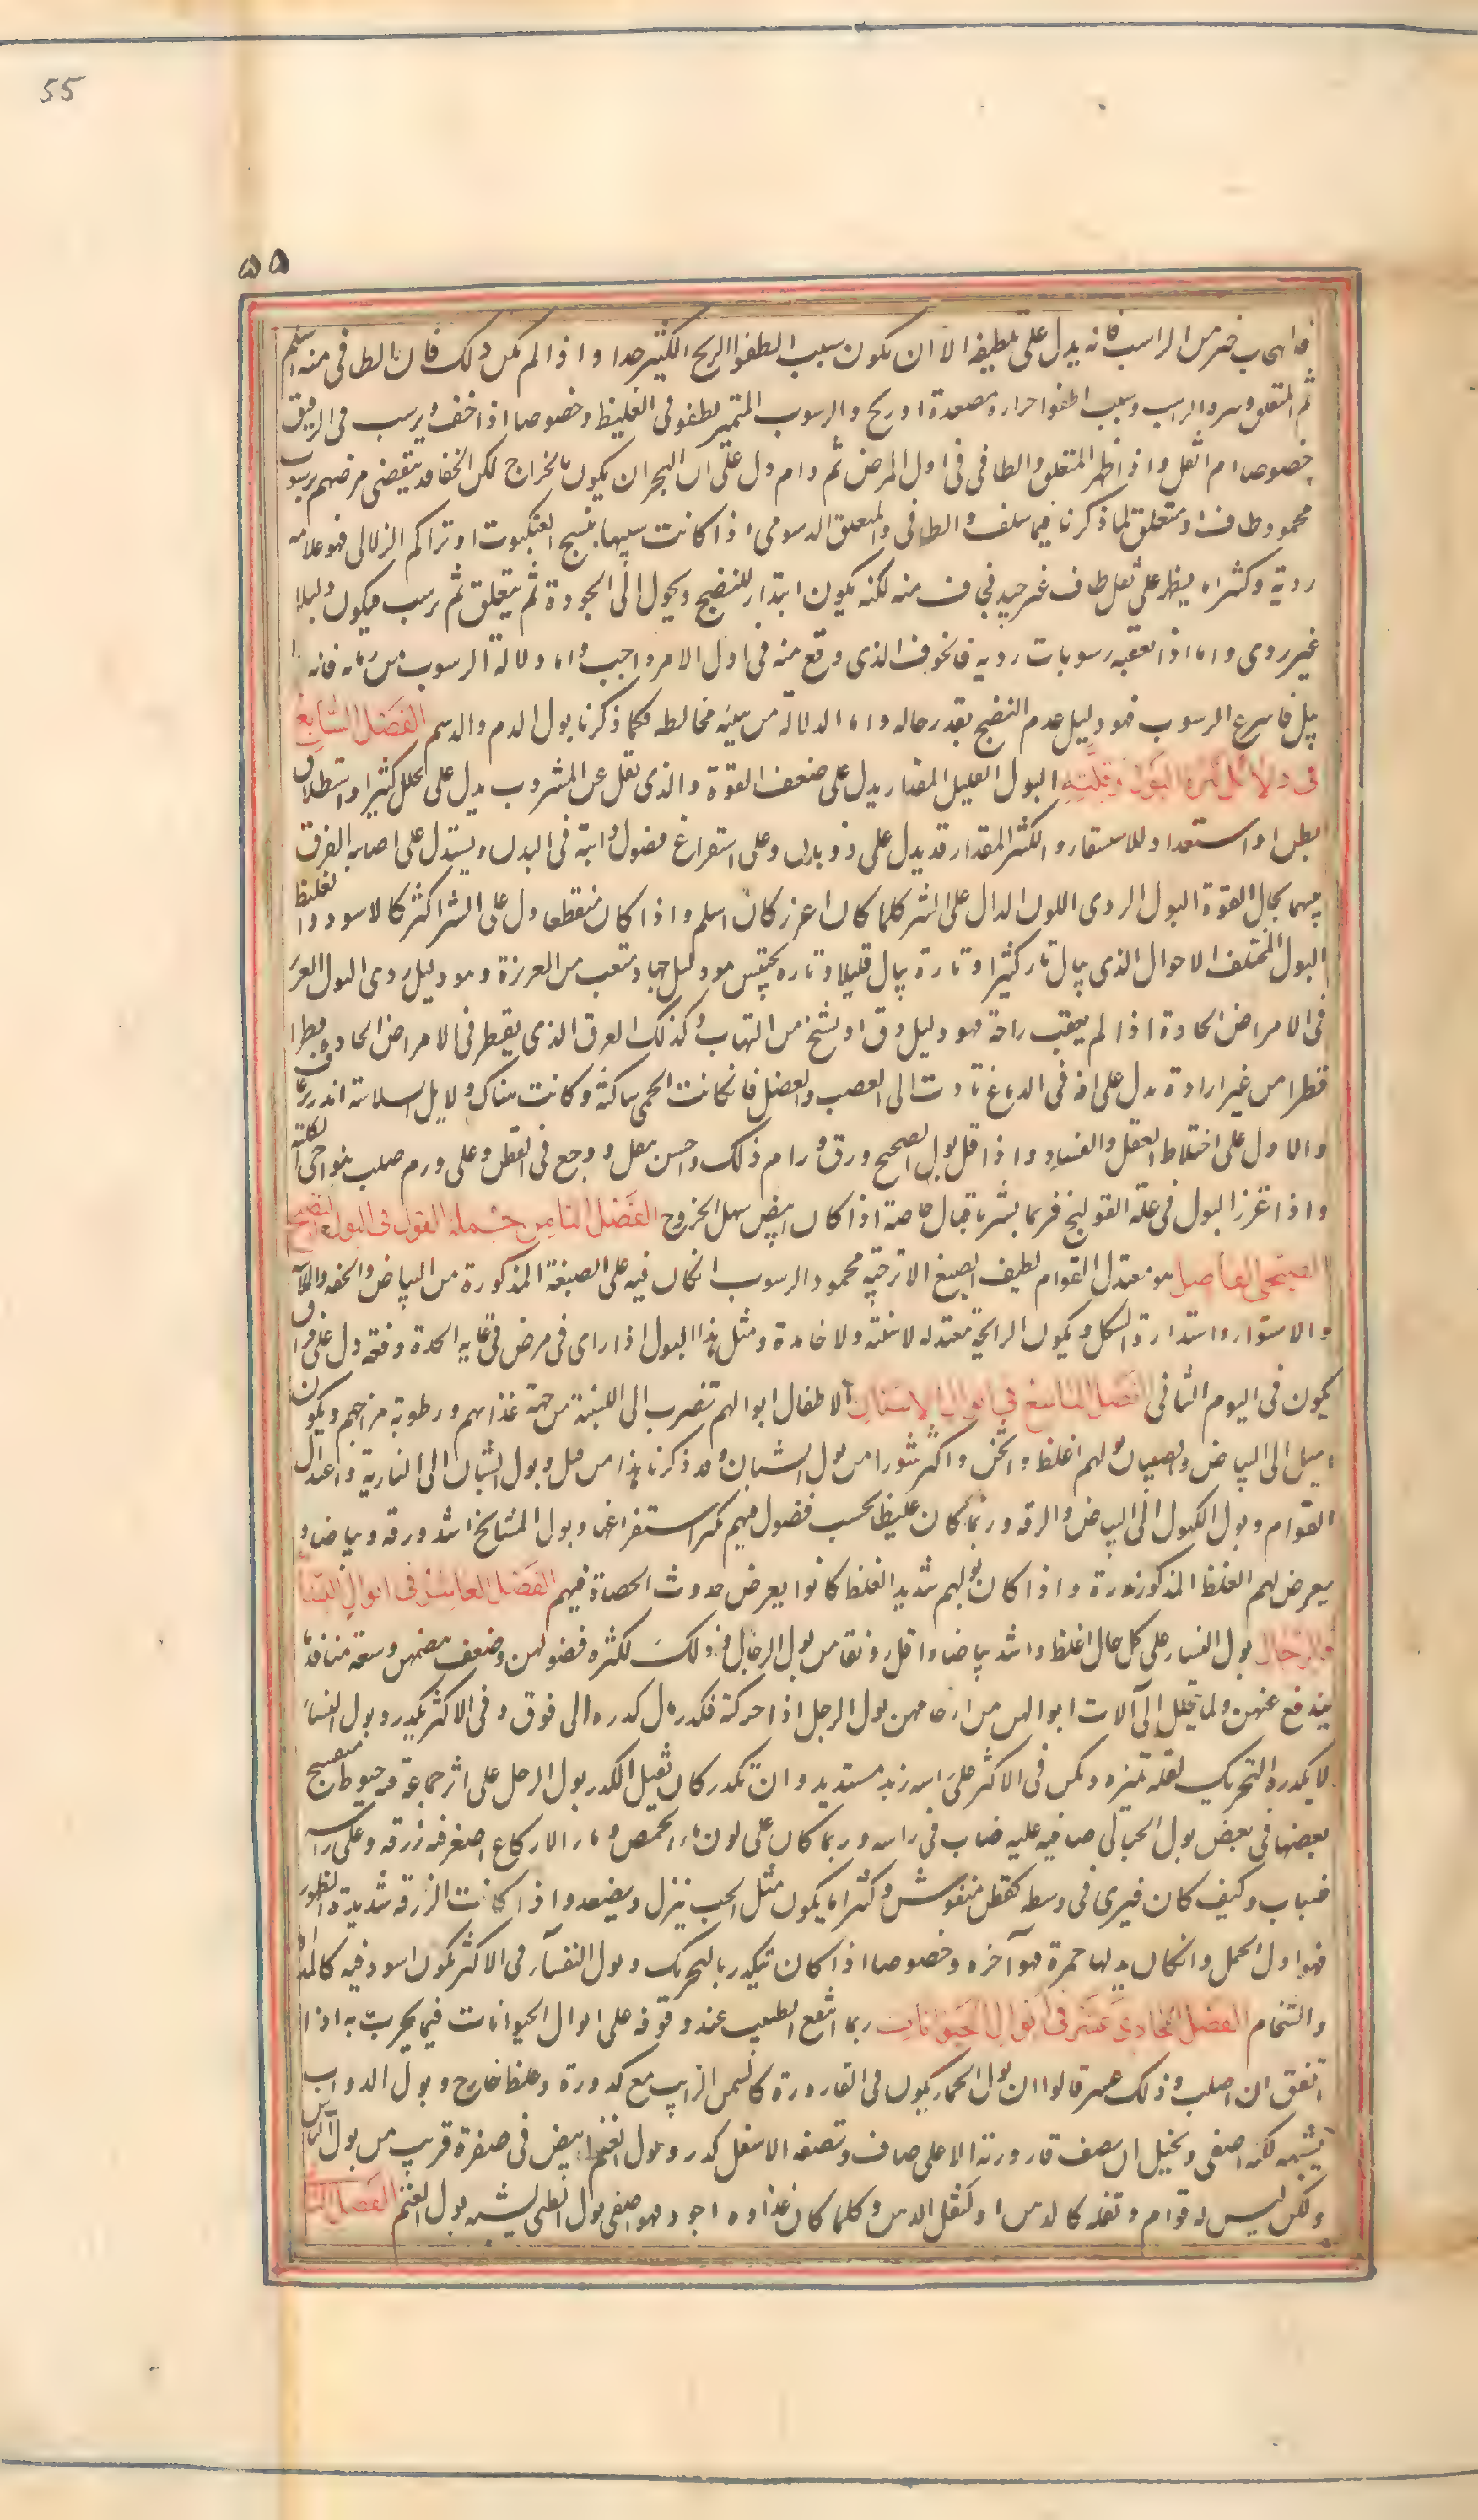 55
٥٥
فالسحاب خير من الراسب فانه يدل على تلطيفه الا ان يكون سبب الطفو الريح الكثير جدا واذا لم يكن ذلك فان الطافى منه اسلم
ثم المتعلق وشره الراسب وسبب الطفو حرارة مصعدة او ريح والرسوب المتميز يطفو فى الغليظ وخصوصا اذا خف ويرسب فى الرقيق
خصوصا ام اثقل واذا ظهر المتعلق والطافى فى اول المرض ثم دام دل على ان البحران يكون بالخراج لكن النحفا قد ينقضى مرضهم برسوب
محمود طاف او متعلق لما ذكرنا فيما سلف والطافى والمتعلق الدسومى اذا كانت شبيها بنسج العنكبوت او تراكم الزلالى فهو علامه
ردية وكثيرا ما يظهر على ثفل طاف غير جيد فيخاف منه لكنه يكون ابتداء للنضج ويحول الى الجودة ثم يتعلق ثم يرسب فيكون دليلا
غير ردى واما اذا تعقبه رسوبات ردية فالخوف الذى وقع منه فى اول الامر واجب واما دلالة الرسوب من زمانه فانه ا
بيل فاسرع الرسوب فهو دليل عدم النضج بقدر حاله واما الدلالة من هيئة مخالطه فكما ذكرنا بول الدم والدسم الفصل السابع
فى دلائل كثرة البول وقلته البول القليل المقدار يدل على ضعف القوة والذى يقل عن المشروب يدل على تحلل كثير او استطلاق
بطن او استعداد للاستسقاء والكثير المقدار قد يدل على ذوبان وعلى استفراغ فضول ذائبة فى البدن ويستدل على اصابه الفرق
بينهما بحال القوة البول الردى اللون الدال على الشر كلما كان اغزر كان اسلم واذا كان منقطعا دل على الشر اكثر كالاسود والغليظ
البول المختلف الاحوال الذى يبال تارة كثيرا وتارة يبال قليلا وتاره يحتبس هو دليل جهاد متعب من الغريزة وهو دليل ردى البول الغزير
فى الامراض الحادة اذا لم يعقب راحة فهو دليل دق او تشنج من التهاب وكذلك العرق الذى يقطر فى الامراض الحادة قطرا
قطرا من غير ارادة يدل على افة فى الدماغ تادت الى العصب والعضل فان كانت الحمى ساكنة وكانت هناك دلايل السلامة انذر برعاف
والا دل على اختلاط العقل والفساد واذا قل بول الصحيح ورق ودام ذلك واحس بثقل ووجع فى القطن دل على ورم صلب بنواحى الكلية
واذا غزر البول فى علة القولنج فربما بشر باقبال خاصة اذا كان ابيض سهل الخروج الفصل الثامن جملة القول فى البول النضيج
الصحى الفاضل هو معتدل القوام لطيف الصبغ الى الاترجية محمود الرسوب ان كان فيه على الصبغة المذكورة من البياض والخفه والملاسه
والاستواء واستدارة الشكل ويكون الرايحة معتدله لا منتنة ولا خامدة ومثل هذا البول اذا راى فى مرض فى غايه الحدة دفعة دل على افراق
يكون فى اليوم الثانى الفصل التاسع فى ابوال الاسنان الاطفال ابوالهم تضرب الى اللبنية من جهة غذائهم ورطوبة مزاجهم ويكون
اميل الى البياض والصبيان بولهم اغلظ واثخن واكثر ثورا من بول الشبان وقد ذكرنا هذا من قبل وبول الشبان الى النارية واعتدال
القوام وبول الكهول الى البياض والرقه وربما كان غليظا بحسب فضول فيهم يكثر استفراغها وبول المشايخ اشد ورقه وبياضا و
يعرض لهم الغلظ المذكور ندرة واذا كان بولهم شديد الغلظ كانوا يعرض حدوث الحصاة فيهم الفصل العاشر فى ابوال النساء
والرجال بول النساء على كل حال اغلظ واشد بياضا واقل رونقا من بول الرجال وذلك لكثرة فضولهن وضعف هضمهن وسعة منافذ ما
يندفع عنهن ولما يتحلل الى آلات ابوالهن من ارحامهن بول الرجل اذا حركته فكدره مال كدره الى فوق وفى الاكثر يكدر وبول النساء
لا يكدره التحريك لقله تميزه ويكون فى الاكثر على راسه زبد مستدير وان تكدر كان قليل الكدر بول الرجل على اثر جماعة فيه خيوط منتسج
بعضها فى بعض بول الحبالى صافيه عليه ضباب فى راسه وربما كان على لون ماء الحمص وماء الاكارع اصفر فيه زرقه وعلى راسه
ضباب وكيف كان فيرى فى وسطه كقطن منفوش وكثيرا ما يكون مثل الحب ينزل ويصعد واذا كانت الزرقه شديدة الظهور
فهو اول الحمل وان كان بدلها حمرة فهو آخره وخصوصا اذا كان يتكدر بالتحريك وبول النفساء فى الاكثر يكون اسود فيه كالمداد
والسخام الفصل الحادى عشر فى ابوال الحيوانات ربما انتفع الطبيب عند وقوفه على ابوال الحيوانات فيما يجرب به اذا
اتفق ان اصاب وذلك عسر قالوا ان بول الحمار يكون فى القارورة كالسمن الذايب مع كدورة وغلظ خارج وبول الدواب
يشبهه لكنه اصفى ويخيل ان نصف قارورته الاعلى صاف ونصفه الاسفل كدر وبول الغنم ابيض فى صفرة قريب من بول الناس
ولكن ليس له قوام وثفله كالدهن او كثفل الدهن وكلما كان غذاؤه اجود فهو اصفى بول الظبى يشبه بول الغنم الفصل الثا